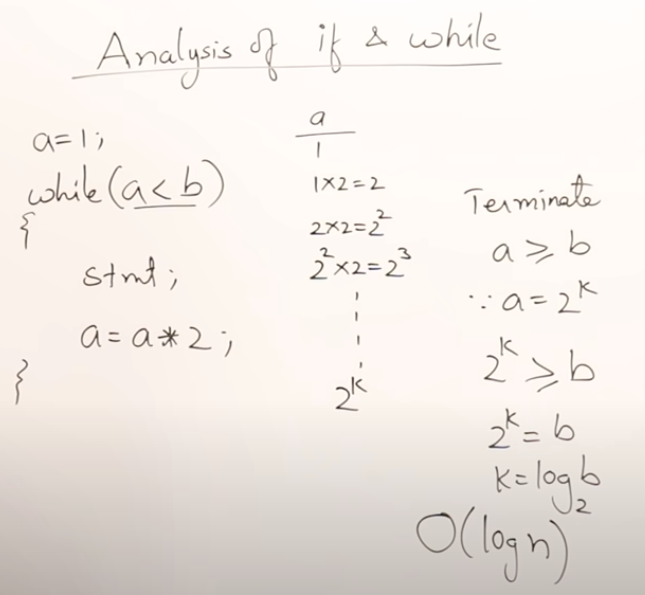 Analysis of if & while
a=1;
while(a<b)
{
stmt;
a=a*2;
}
a
1
1×2=2
2×2=2²
2²×2=2³
2ᵏ
Terminate
a≥b
∵a=2ᵏ
2ᵏ≥b
2ᵏ=b
k=log₂b
O(log n)